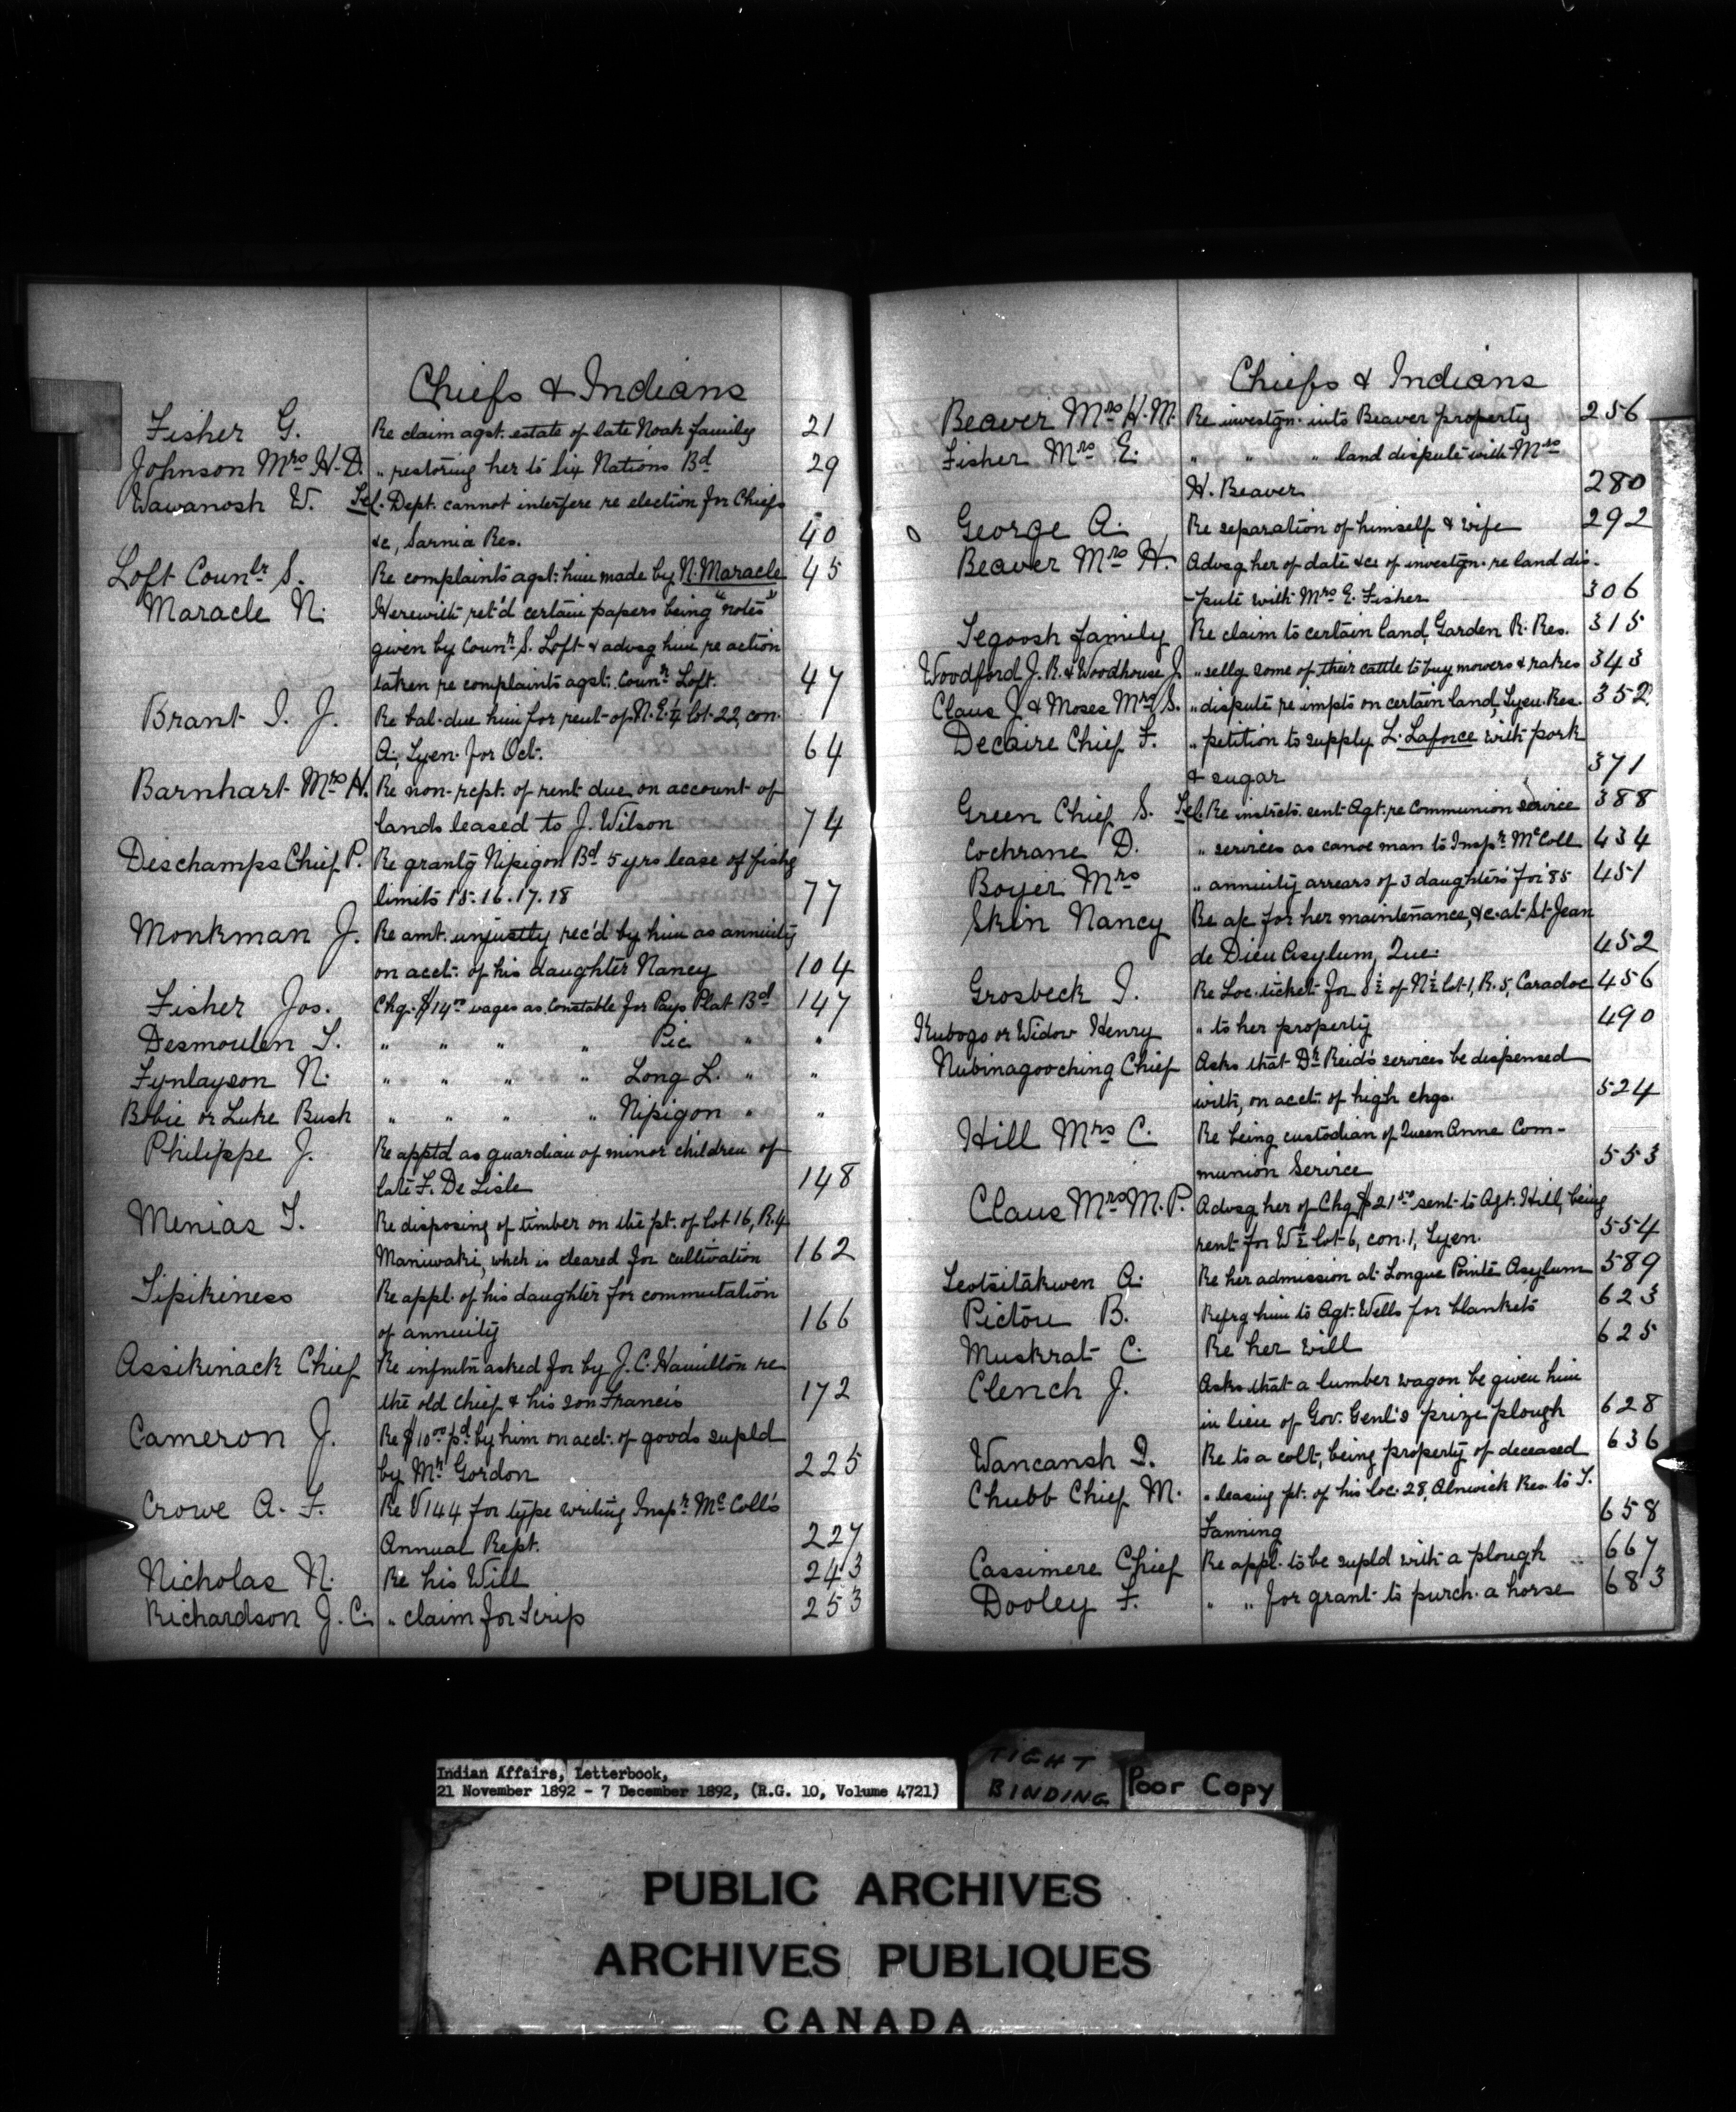 Chiefs & Indians
Fisher G. Re claim agst. estate of late Noah family 21
Johnson Mrs H. D. „ restoring her to Six Nations Bd 29
Wawanosh W. Tel. Dept. cannot interfere re election for Chiefs
&c, Sarnia Res. 40
Loft Counlr S. Re complaints agst. him made by N. Maracle 45
Maracle N. Herewith ret'd certain papers being "notes"
given by Counr S. Loft & advsg him re action
taken re complaints agst. Counr Loft. 47
Brant I. J. Re bal. due him for rent of N.E.¼ lot 22, con.
A, Tyen. for Oct. 64
Barnhart Mrs H. Re non-rept. of rent due on account of
lands leased to J. Wilson 74
Deschamps Chief P. Re grantg Nipigon Bd 5 yrs lease of fishg
limits 15. 16. 17. 18 77
Monkman J. Re amt. unjustly rec'd by him as annuity
on acct. of his daughter Nancy 104
Fisher Jos. Chq. $14.00 wages as Constable for Pays Plat Bd 147
Desmoulen T. „ „ „ „ Pic „ „
Fynlayson N. „ „ „ „ Long L. „ „
Bobie or Luke Bush „ „ „ „ Nipigon „ „
Philippe J. Re apptd as guardian of minor children of
late F. De Lisle 148
Menias T. Re disposing of timber on the pt. of lot 16, R. 4
Maniwaki, whch is cleared for cultivation 162
Tipikiness Re appl. of his daughter for commutation
of annuity 166
Assikinack Chief Re infmtn asked for by J. C. Hamilton re
the old chief & his son Francis 172
Cameron J. Re $10.00 pd by him on acct. of goods supld
by Mr Gordon 225
Crowe A. F. Re V 144 for type writing Inspr McColl's
Annual Rept. 227
Nicholas N. Re his Will 243
Richardson J. C. „ claim for Scrip 253
Chiefs & Indians
Beaver Mrs H. M. Re investgn. into Beaver property 256
Fisher Mrs E. „ „ „ land dispute with Mrs
H. Beaver 280
George A. Re separation of himself & wife 292
Beaver Mrs H. Advsg her of date &c of investgn. re land dis-
-pute with Mrs E. Fisher 306
Tegoosh family Re claim to certain land, Garden R. Res. 315
Woodford J. R. & Woodhouse J. „ sellg some of their cattle to buy mowers & rakes 343
Claus J. & Moses Mrs S. „ dispute re impts on certain land, Tyen. Res. 352
Decaire Chief F. „ petition to supply L. Laforce with pork
& sugar 371
Green Chief S. Tel. Re instrcts. sent Agt. re Communion service 388
Cochrane D. „ services as canoe man to Inspr McColl 434
Boyer Mrs „ annuity arrears of 3 daughters for '85 451
Skin Nancy Re a/c for her maintenance, &c. at St. Jean
de Dieu Asylum, Que. 452
Grosbeck I. Re Loc. ticket for S½ of N½ lot 1, R. 5, Caradoc 456
Kubogo or Widow Henry „ to her property 490
Nubinagooching Chief Asks that Dr Reid's services be dispensed
with, on acct. of high chgs. 524
Hill Mrs C. Re being custodian of Queen Anne Com-
munion Service 553
Claus Mrs M. P. Advsg her of Chq $21.50 sent to Agt. Hill, being
rent for W½ lot 6, con. 1, Tyen. 554
Teotsitakwen A. Re her admission at Longue Pointe Asylum 589
Pictou B. Refrg him to Agt. Wells for blankets 623
Muskrat C. Re her will 625
Clench J. Asks that a lumber wagon be given him
in lieu of Gov. Genl's prize plough 628
Wancansh I. Re to a colt, being property of deceased 636
Chubb Chief M. „ leasing pt. of his loc. 28, Alnwick Res. to T.
Fanning 658
Cassimere Chief Re appl. to be supld with a plough 667
Dooley F. „ „ for grant to purch. a horse 683
Indian Affairs, Letterbook,
21 November 1892 - 7 December 1892, (R.G. 10, Volume 4721)
TIGHT
BINDING
Poor Copy
PUBLIC ARCHIVES
ARCHIVES PUBLIQUES
CANADA